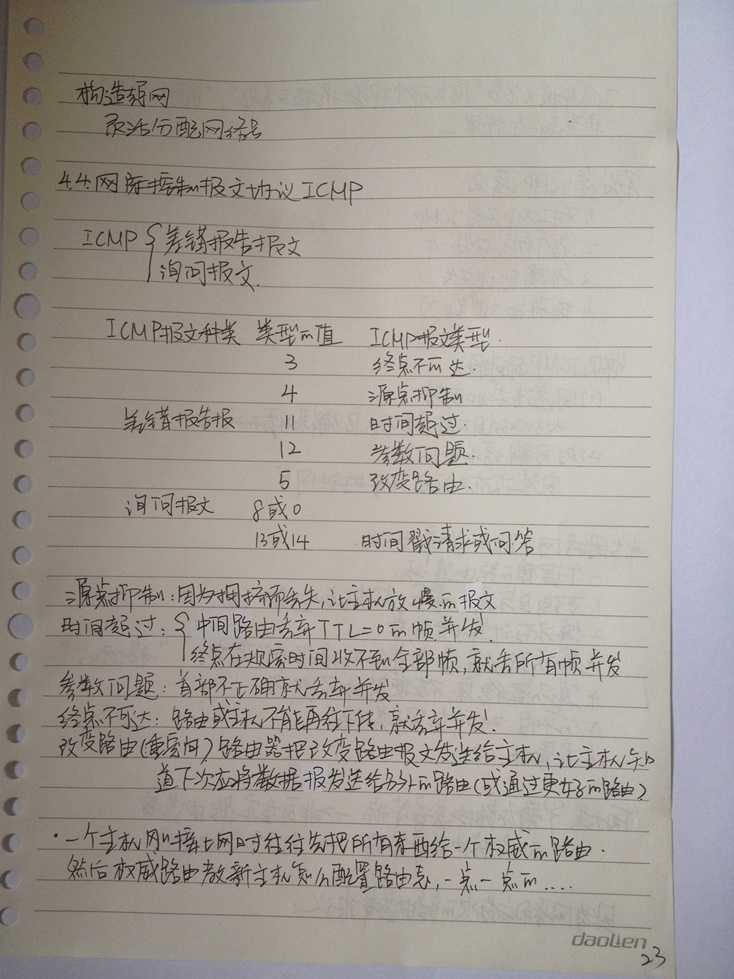 构造超网
灵活分配网络号
4.4.网际控制报文协议ICMP
ICMP { 差错报告报文
询问报文.
ICMP报文种类 类型的值 ICMP报文类型.
3 终点不可达.
4 源点抑制
差错报告报 11 时间超过.
12 参数问题.
5 改变路由.
询问报文 8或0
13或14 时间戳请求或回答
源点抑制:因为拥挤而丢失,让主机放慢的报文
时间超过: { 中间路由丢弃TTL=0的帧并发.
终点在规定时间收不到全部帧,就丢所有帧并发
参数问题:首部不正确就丢弃并发
终点不可达:路由或主机不能再往下传,就丢弃并发.
改变路由(重定向)路由器把改变路由报文发送给主机,让主机知
道下次应将数据报发送给另外的路由(或通过更好的路由)
·一个主机刚接上网时往往先把所有东西给一个权威的路由.
然后权威路由教新主机怎么配置路由表,一点一点的.....
daolien
23